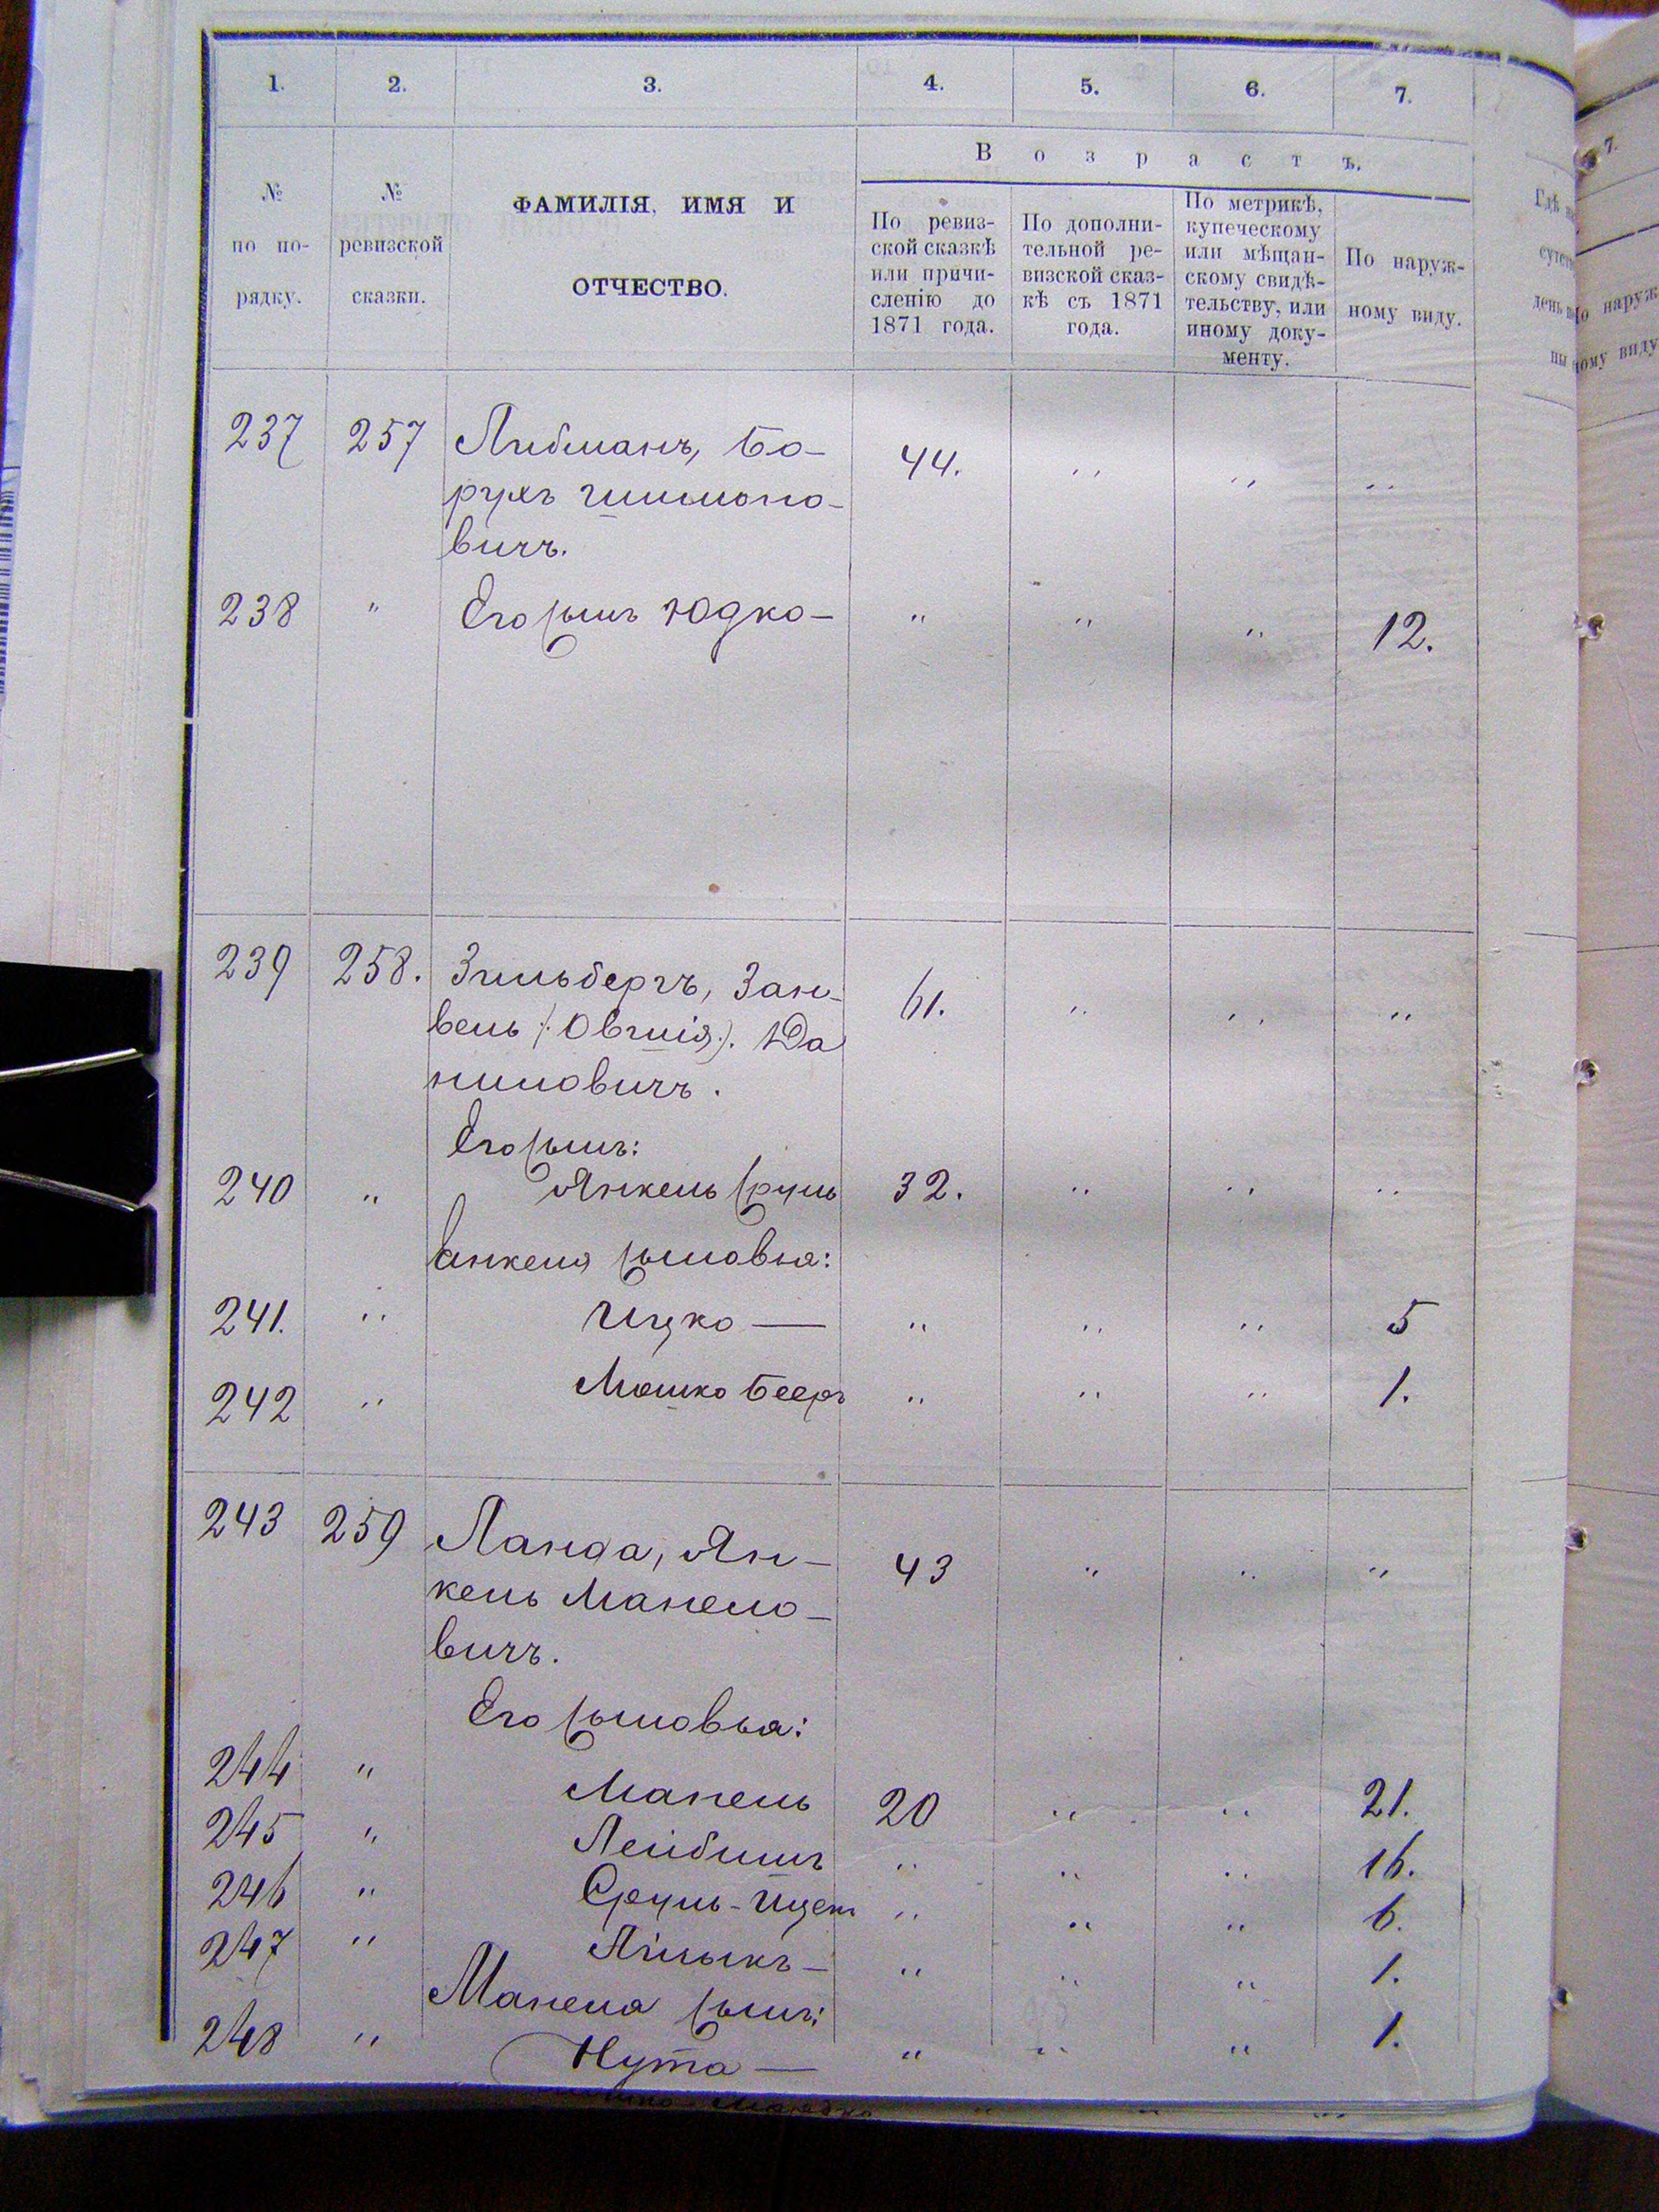 1. 2. 3. 4. 5. 6. 7.
№ по порядку.
№ ревизской сказки.
ФАМИЛІЯ, ИМЯ И
ОТЧЕСТВО.
Возрастъ.
По ревиз-
ской сказкѣ
или причи-
сленію до
1871 года.
По дополни-
тельной ре-
визской сказ-
кѣ съ 1871
года.
По метрикѣ,
купеческому
или мѣщан-
скому свидѣ-
тельству, или
иному доку-
менту.
По наруж-
ному виду.
237 257 Либманъ, Бо- 44. " " "
рухъ Шимоно-
вичъ.
238 " Его сынъ Юдко- " " " 12.
239 258. Зильбергъ, Зан- 61. " " "
вель (: Овшія :). Да
ниловичъ.
Его сынъ:
240 " Янкель Сруль 32. " " "
Янкеля сыновья:
241. " Ицко — " " " 5
242 " Мошко Бееръ " " " 1.
243 259 Ланда, Ян- 43 " " "
кель Манело-
вичъ.
Его сыновья:
244 " Манель 20 " " 21.
245 " Лейбишъ " " " 16.
246 " Сруль-Ицекъ " " " 6.
247 " " " " 1.
Манеля сынъ:
248 " Нута — " " " 1.